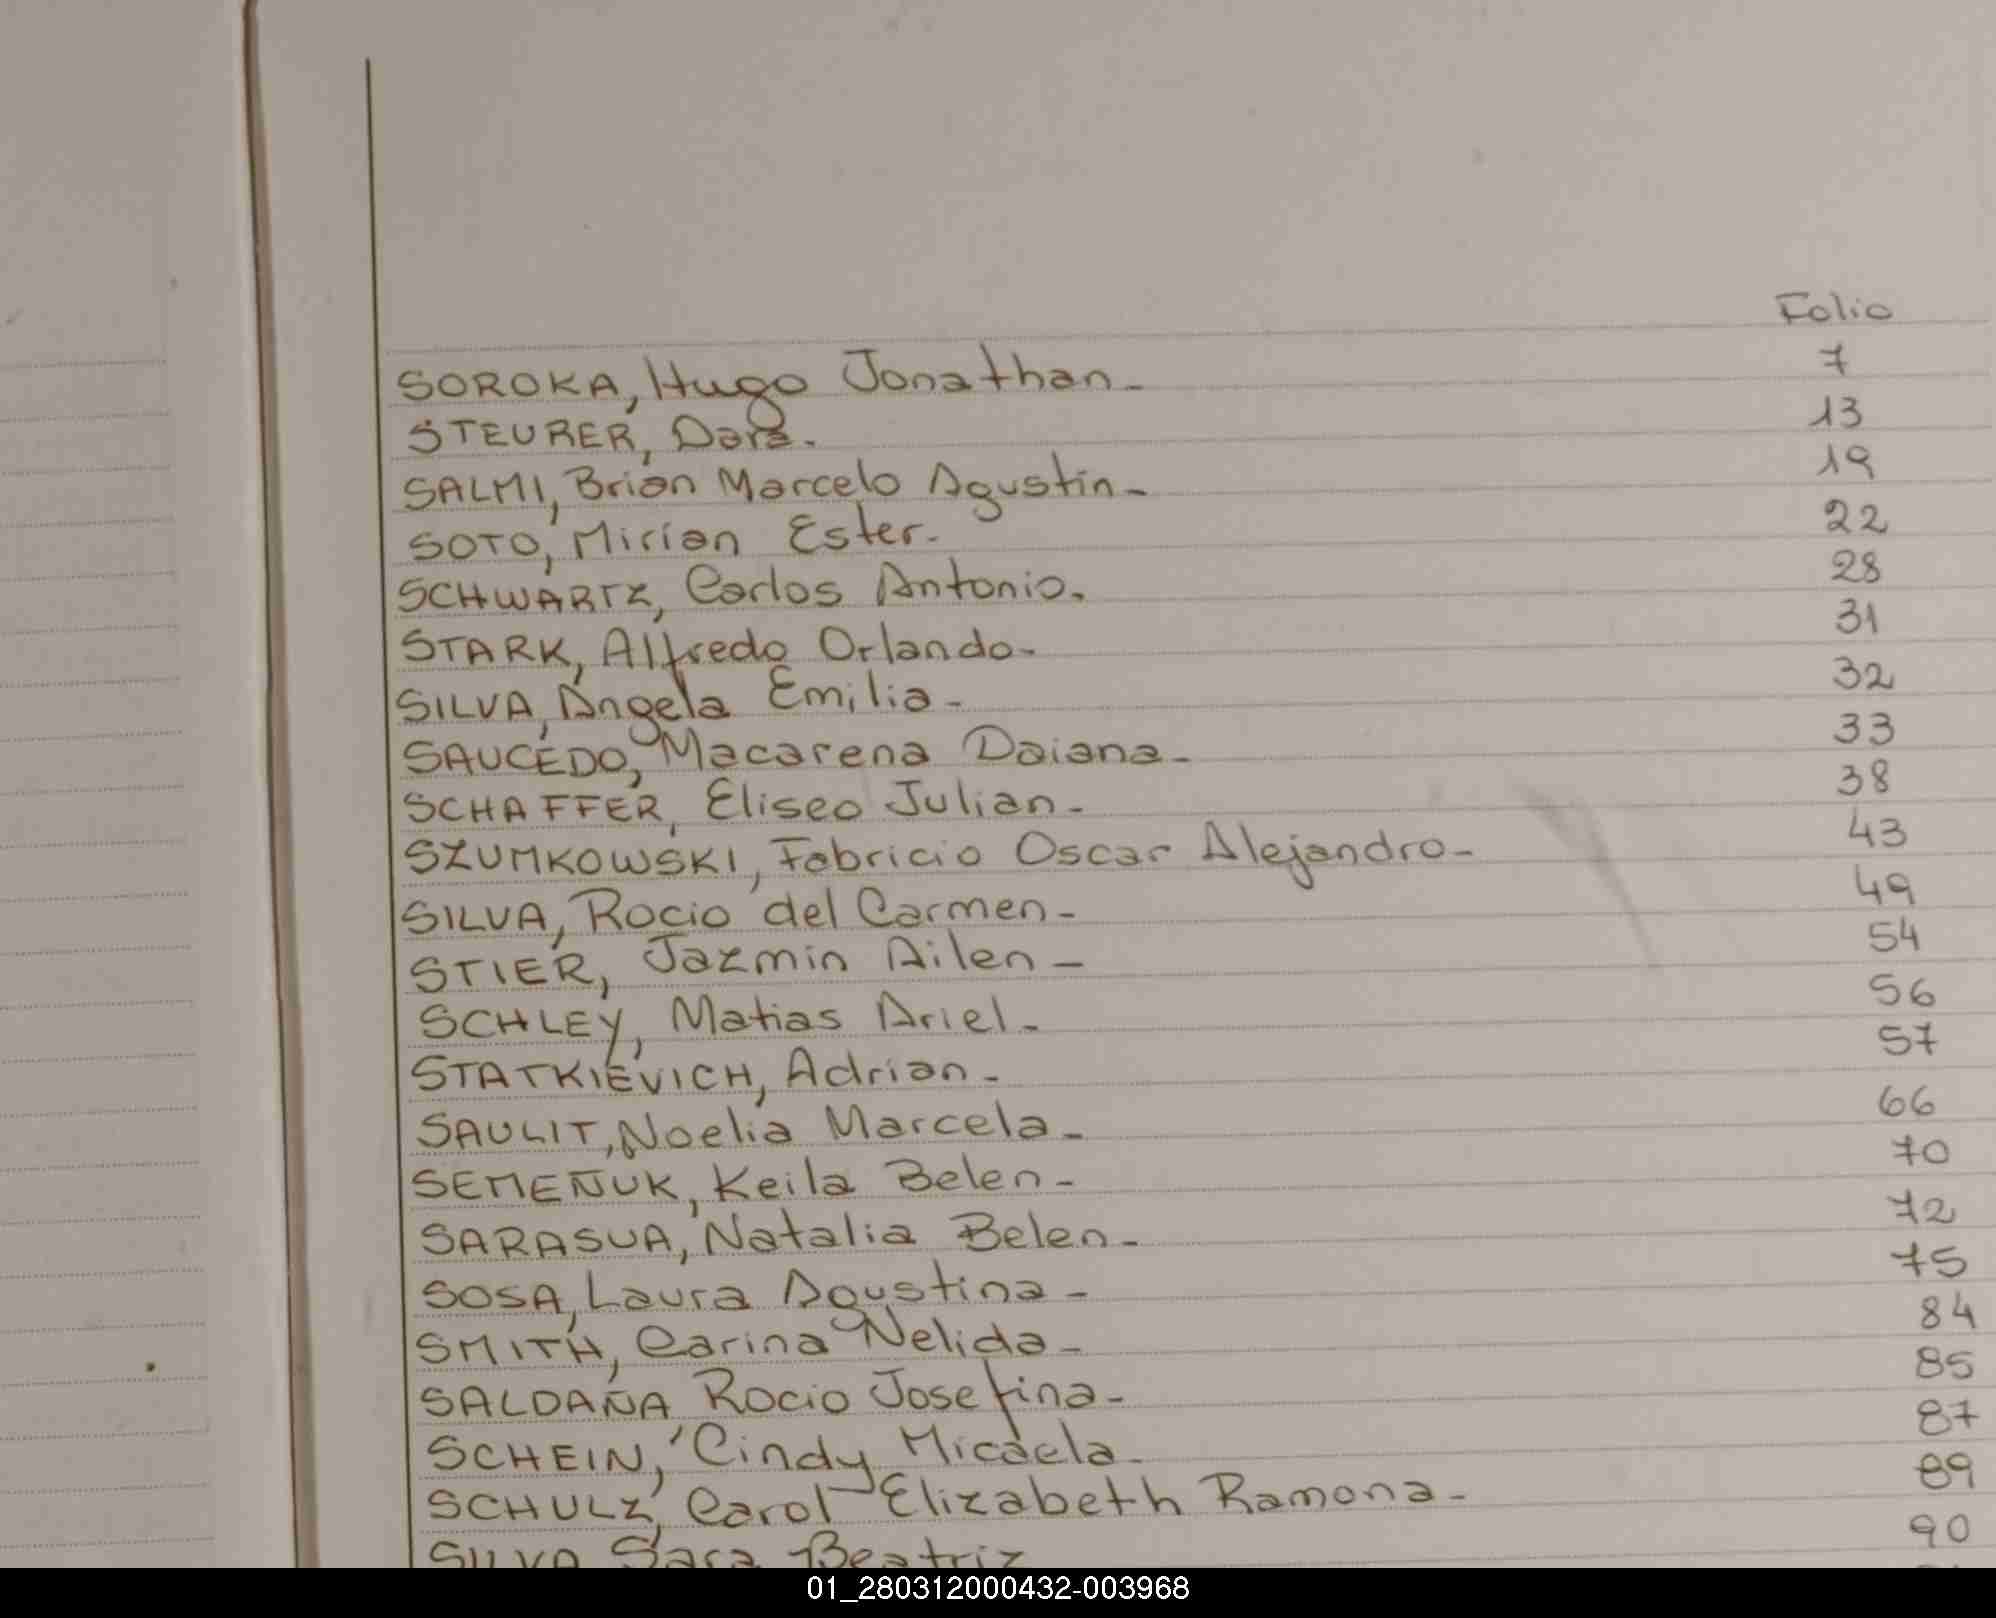 Folio
SOROKA, Hugo Jonathan- 7
STEURER, Dara. 13
SALMI, Brian Marcelo Agustín- 19
SOTO, Mirian Ester- 22
SCHWARTZ, Carlos Antonio. 28
STARK, Alfredo Orlando- 31
SILVA, Angela Emilia- 32
SAUCEDO, Macarena Daiana- 33
SCHAFFER, Eliseo Julian- 38
SZUMKOWSKI, Fabricio Oscar Alejandro- 43
SILVA, Rocio del Carmen- 49
STIER, Jazmin Ailen- 54
SCHLEY, Matias Ariel- 56
STATKIEVICH, Adrian- 57
SAULIT, Noelia Marcela- 66
SEMEÑUK, Keila Belen- 70
SARASUA, Natalia Belen- 72
SOSA, Laura Agustina- 75
SMITH, Carina Nelida- 84
SALDAÑA Rocio Josefina- 85
SCHEIN, Cindy Micaela- 87
SCHULZ, Carol Elizabeth Ramona- 89
SILVA Sara Beatriz 90
01_280312000432-003968